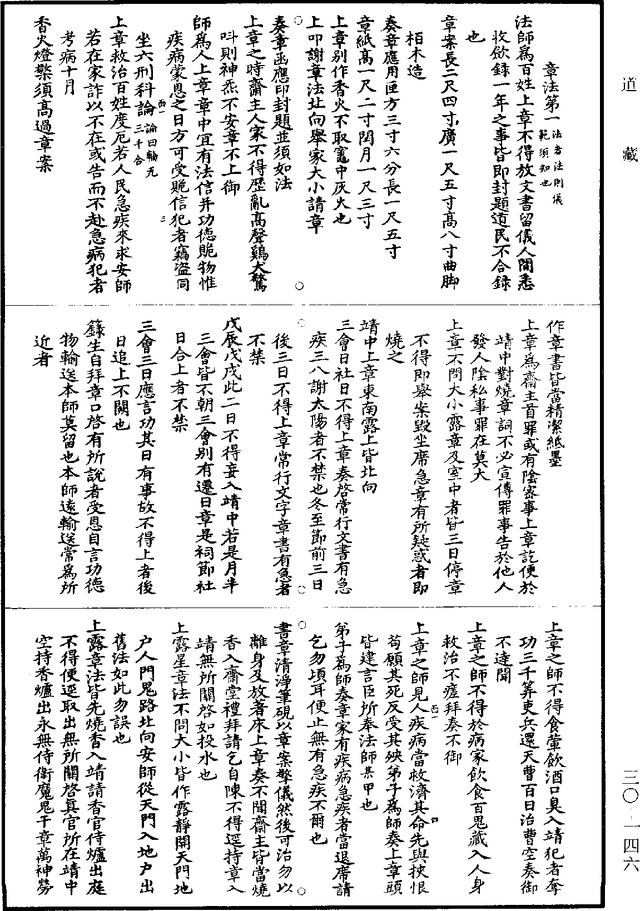 道藏
三〇-一四六
章法第一法者法則儀範須知也
法師為百姓上章不得放文書留儀人間悉
收斂錄一年之事皆即封題道民不合錄
也
章案長二尺四寸廣一尺五寸高八寸曲脚
栢木造
奏章應用匣方三寸六分長一尺五寸
章紙高一尺二寸閏月一尺三寸
上章別作香火不取竈中灰火也
上叩謝章法北向舉家大小請章
奏章函應印封題並須如法
上章之時齋主人家不得歷亂高聲鷄犬驚
叫則神炁不安章不上御
師為人上章章中宜有法信并功德賍物惟
疾病蒙恩之日方可受賍信犯者竊盜同
坐六刑科論論曰輸充三千合
上章救治百姓度厄若人民急疾來求安師
若在家詐以不在或告而不赴急病犯者
考病十月
香火燈檠須高過章案
作章書皆當精潔紙墨
上章為齋主首罪或有陰密事上章訖便於
靖中對燒章詞不必宣傳罪事告於他人
發人陰私事罪在莫大
上章不問大小露章及室中者皆三日停章
不得即舉案毀坐席急章有所疑惑者即
燒之
靖中上章東南露上皆北向
三會日社日不得上章奏啓常行文書有急
疾三八謝太陽者不禁也冬至節前三日
後三日不得上章常行文字章書有急者
不禁
戊辰戊戌此二日不得妄入靖中若是月半
三會皆不朝三會別有遷日章是祠節社
日合上者不禁
三會三日應言功其日有事故不得上者後
日追上不闕也
籙生自拜章口啓有所說者受恩自言功德
物輸送本師莫留也本師遠輸送常為所
近者
上章之師不得食葷飲酒口臭入靖犯者奪
功三千筭吏兵還天曹百日治曹空奏御
不達聞
上章之師不得於病家飲食百鬼藏入人身
救治不瘥拜奏不御
上章之師見人疾病當救濟其命先與挾恨
苟願其死反受其殃弟子為師奏上章頭
皆建言臣所奏法師某甲也
弟子為師奏章家有疾病急疾者當退席請
乞勿頃耳便止無有急疾不爾也
書章清淨筆硯以章案檠儀然後可治勿以
離身及放著床上章奏不聞齋主皆當燒
香入齋堂禮拜請乞自陳不得逕持章入
靖無所關啓如投水也
上露星章法不問大小皆作露靜開天門地
户人門鬼路北向安師從天門入地户出
舊法如此勿誤也
上露章法皆先燒香入靖請香官侍爐出庭
不得便逕取出無所關啓真官所在靖中
空持香爐出永無侍衛魔鬼干章萬神勞